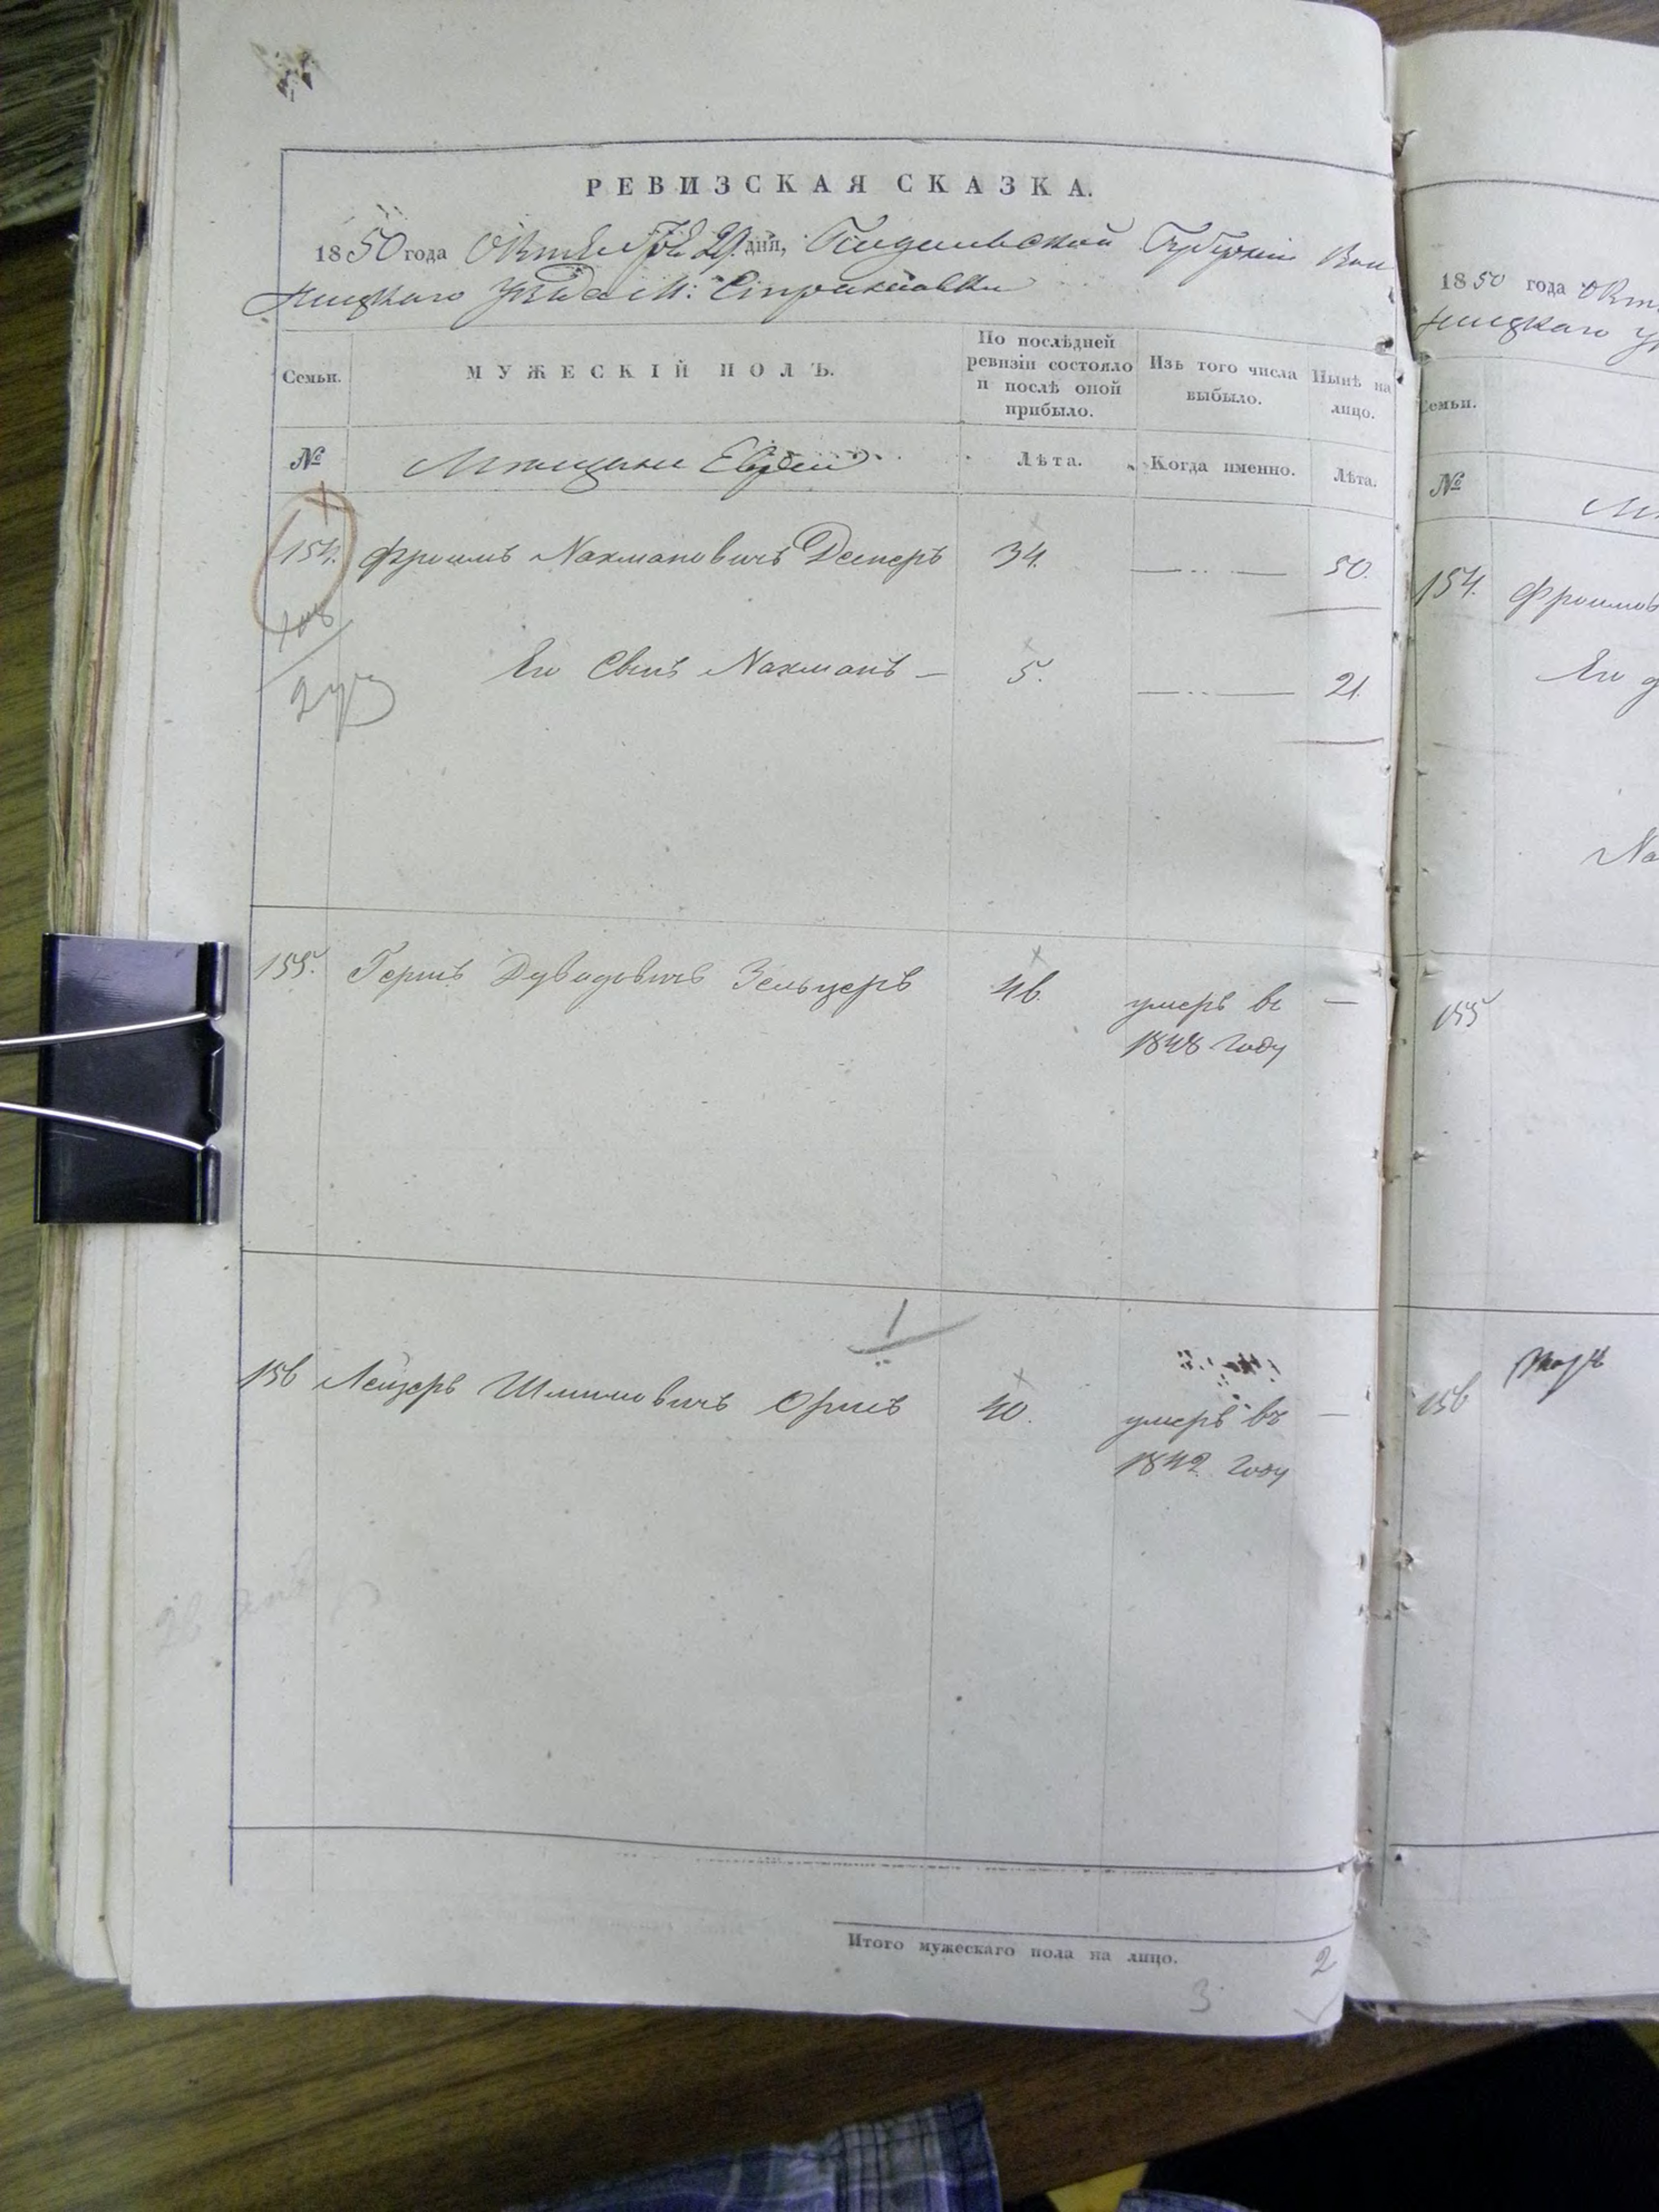 РЕВИЗСКАЯ СКАЗКА.
1850 года Октября 29 дня, Подольской Губернии Вин
ницкаго уѣзда м: Стрижавки
Семьи.
МУЖЕСКІЙ ПОЛЪ.
По послѣдней
ревизіи состояло
и послѣ оной
прибыло.
Изъ того числа
выбыло.
Нынѣ на
лицо.
№
Мѣщане Евреи
Лѣта.
Когда именно.
Лѣта.
154. Фроимъ Нахмановичъ 34. 50.
Его Сынъ Нахманъ 5. 21.
155. Гершъ Дувидовичъ Зельцеръ 46. умеръ въ —
1848 году
156 Лейзеръ Шлиомовичъ 40. умеръ въ —
1842 году
Итого мужескаго пола на лицо. 2
3
1850 года Окт
ницкаго у
Семьи.
№
154. Фроимов
Его
На
155
156